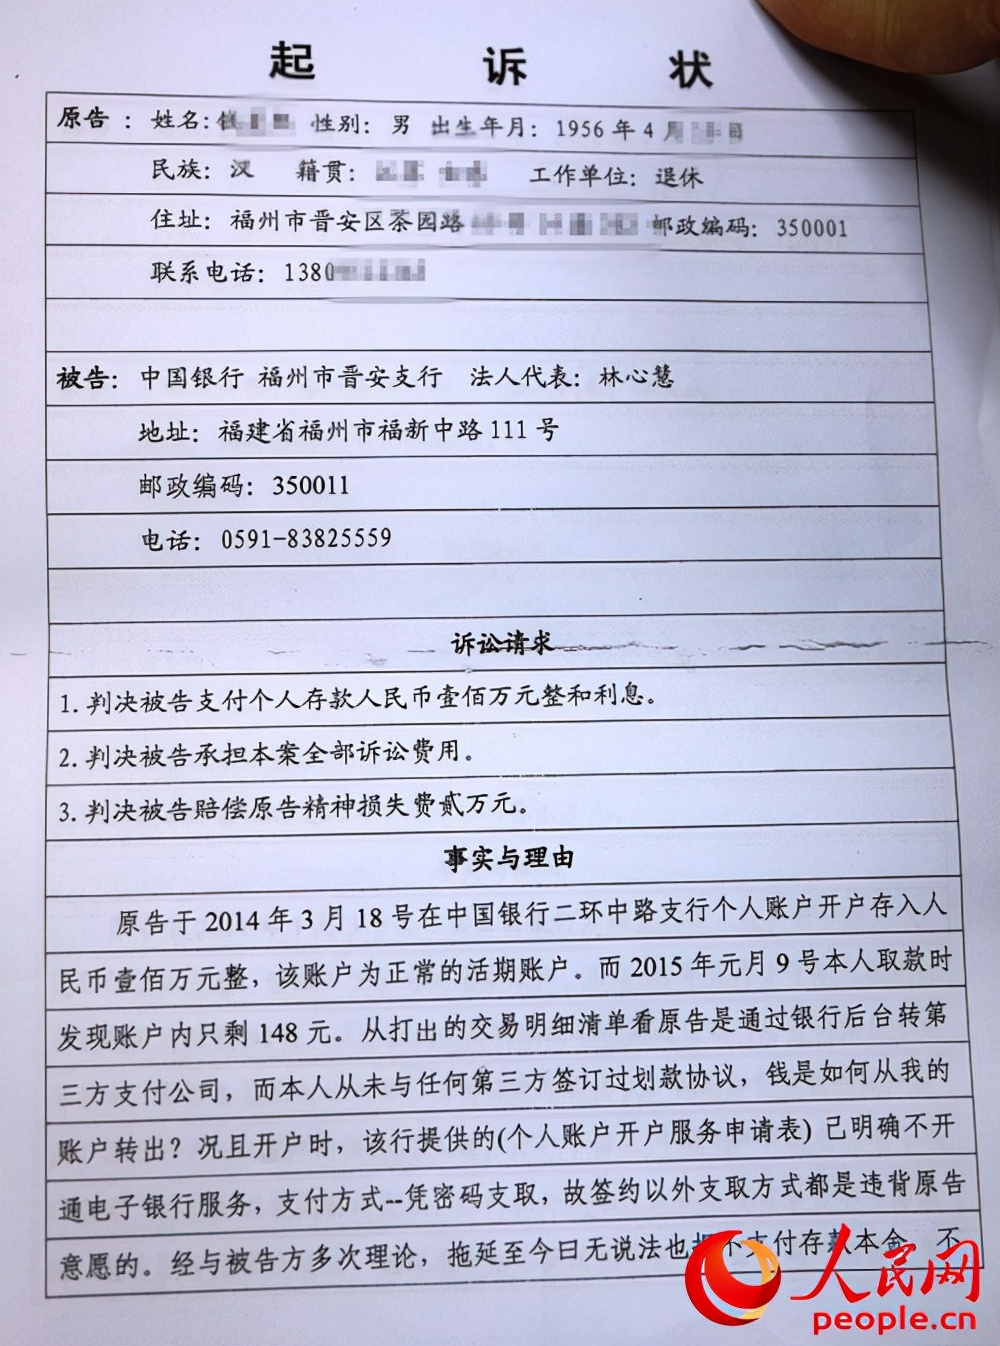 起 诉 状
原告 : 姓名: 性别: 男 出生年月: 1956 年 4 月
民族: 汉 籍贯: 工作单位: 退休
住址: 福州市晋安区茶园路 邮政编码: 350001
联系电话: 1380
被告: 中国银行 福州市晋安支行 法人代表: 林心慧
地址: 福建省福州市福新中路 111 号
邮政编码: 350011
电话: 0591-83825559
诉讼请求
1. 判决被告支付个人存款人民币壹佰万元整和利息。
2. 判决被告承担本案全部诉讼费用。
3. 判决被告赔偿原告精神损失费贰万元。
事实与理由
原告于 2014 年 3 月 18 号在中国银行二环中路支行个人账户开户存入人
民币壹佰万元整, 该账户为正常的活期账户。而 2015 年元月 9 号本人取款时
发现账户内只剩 148 元。从打出的交易明细清单看原告是通过银行后台转第
三方支付公司, 而本人从未与任何第三方签订过划款协议, 钱是如何从我的
账户转出? 况且开户时, 该行提供的(个人账户开户服务申请表) 已明确不开
通电子银行服务, 支付方式--凭密码支取, 故签约以外支取方式都是违背原告
意愿的。经与被告方多次理论, 拖延至今日无说法也 不支付存款本金 不
人民网
people.cn